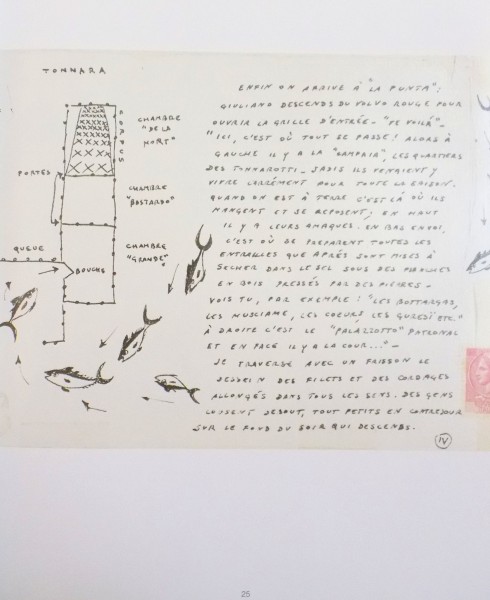 TONNARA
CORPUS
CHAMBRE
"DE LA
MORT"
PORTES
CHAMBRE
"BASTARDO"
QUEUE
CHAMBRE
"GRANDE"
BOUCHE
ENFIN ON ARRIVE À "LA PUNTA":
GIULIANO DESCENDS DU VOLVO ROUGE POUR
OUVRIR LA GRILLE D'ENTRÉE_ "TE VOILÀ"_
"ICI, C'EST OÙ TOUT SE PASSE! ALORS À
GAUCHE IL Y A LA "CAMPAIA", LES QUARTIERS
DES TONNAROTTI_ JADIS ILS VENAIENT Y
VIVRE CARRÉMENT POUR TOUTE LA SAISON.
QUAND ON EST À TERRE C'EST LÀ OÙ ILS
MANGENT ET SE REPOSENT; EN HAUT
IL Y A LEURS AMAQUES. EN BAS
C'EST OÙ SE PREPARENT TOUTES LES
ENTRAILLES QUE APRÉS SONT MISES À
SECHER DANS LE SEL SOUS DES
EN BOIS PRESSÉS PAR DES PIERRES_
VOIS TU, PAR EXEMPLE: "LES BOTTARGAS,
LES MUSCIAME, LES COEURS, LES ETC."
À DROITE C'EST LE "PALAZZOTTO" PATRONAL
ET EN FACE IL Y A LA COUR..."_
JE TRAVERSE AVEC UN FRISSON LE
DESSEIN DES FILETS ET DES CORDAGES
ALLONGÉS DANS TOUS LES SENS. DES GENS
DEBOUT, TOUT PETITS EN CONTREJOUR
SUR LE FOND DU SOIR QUI DESCENDS.
IV
25